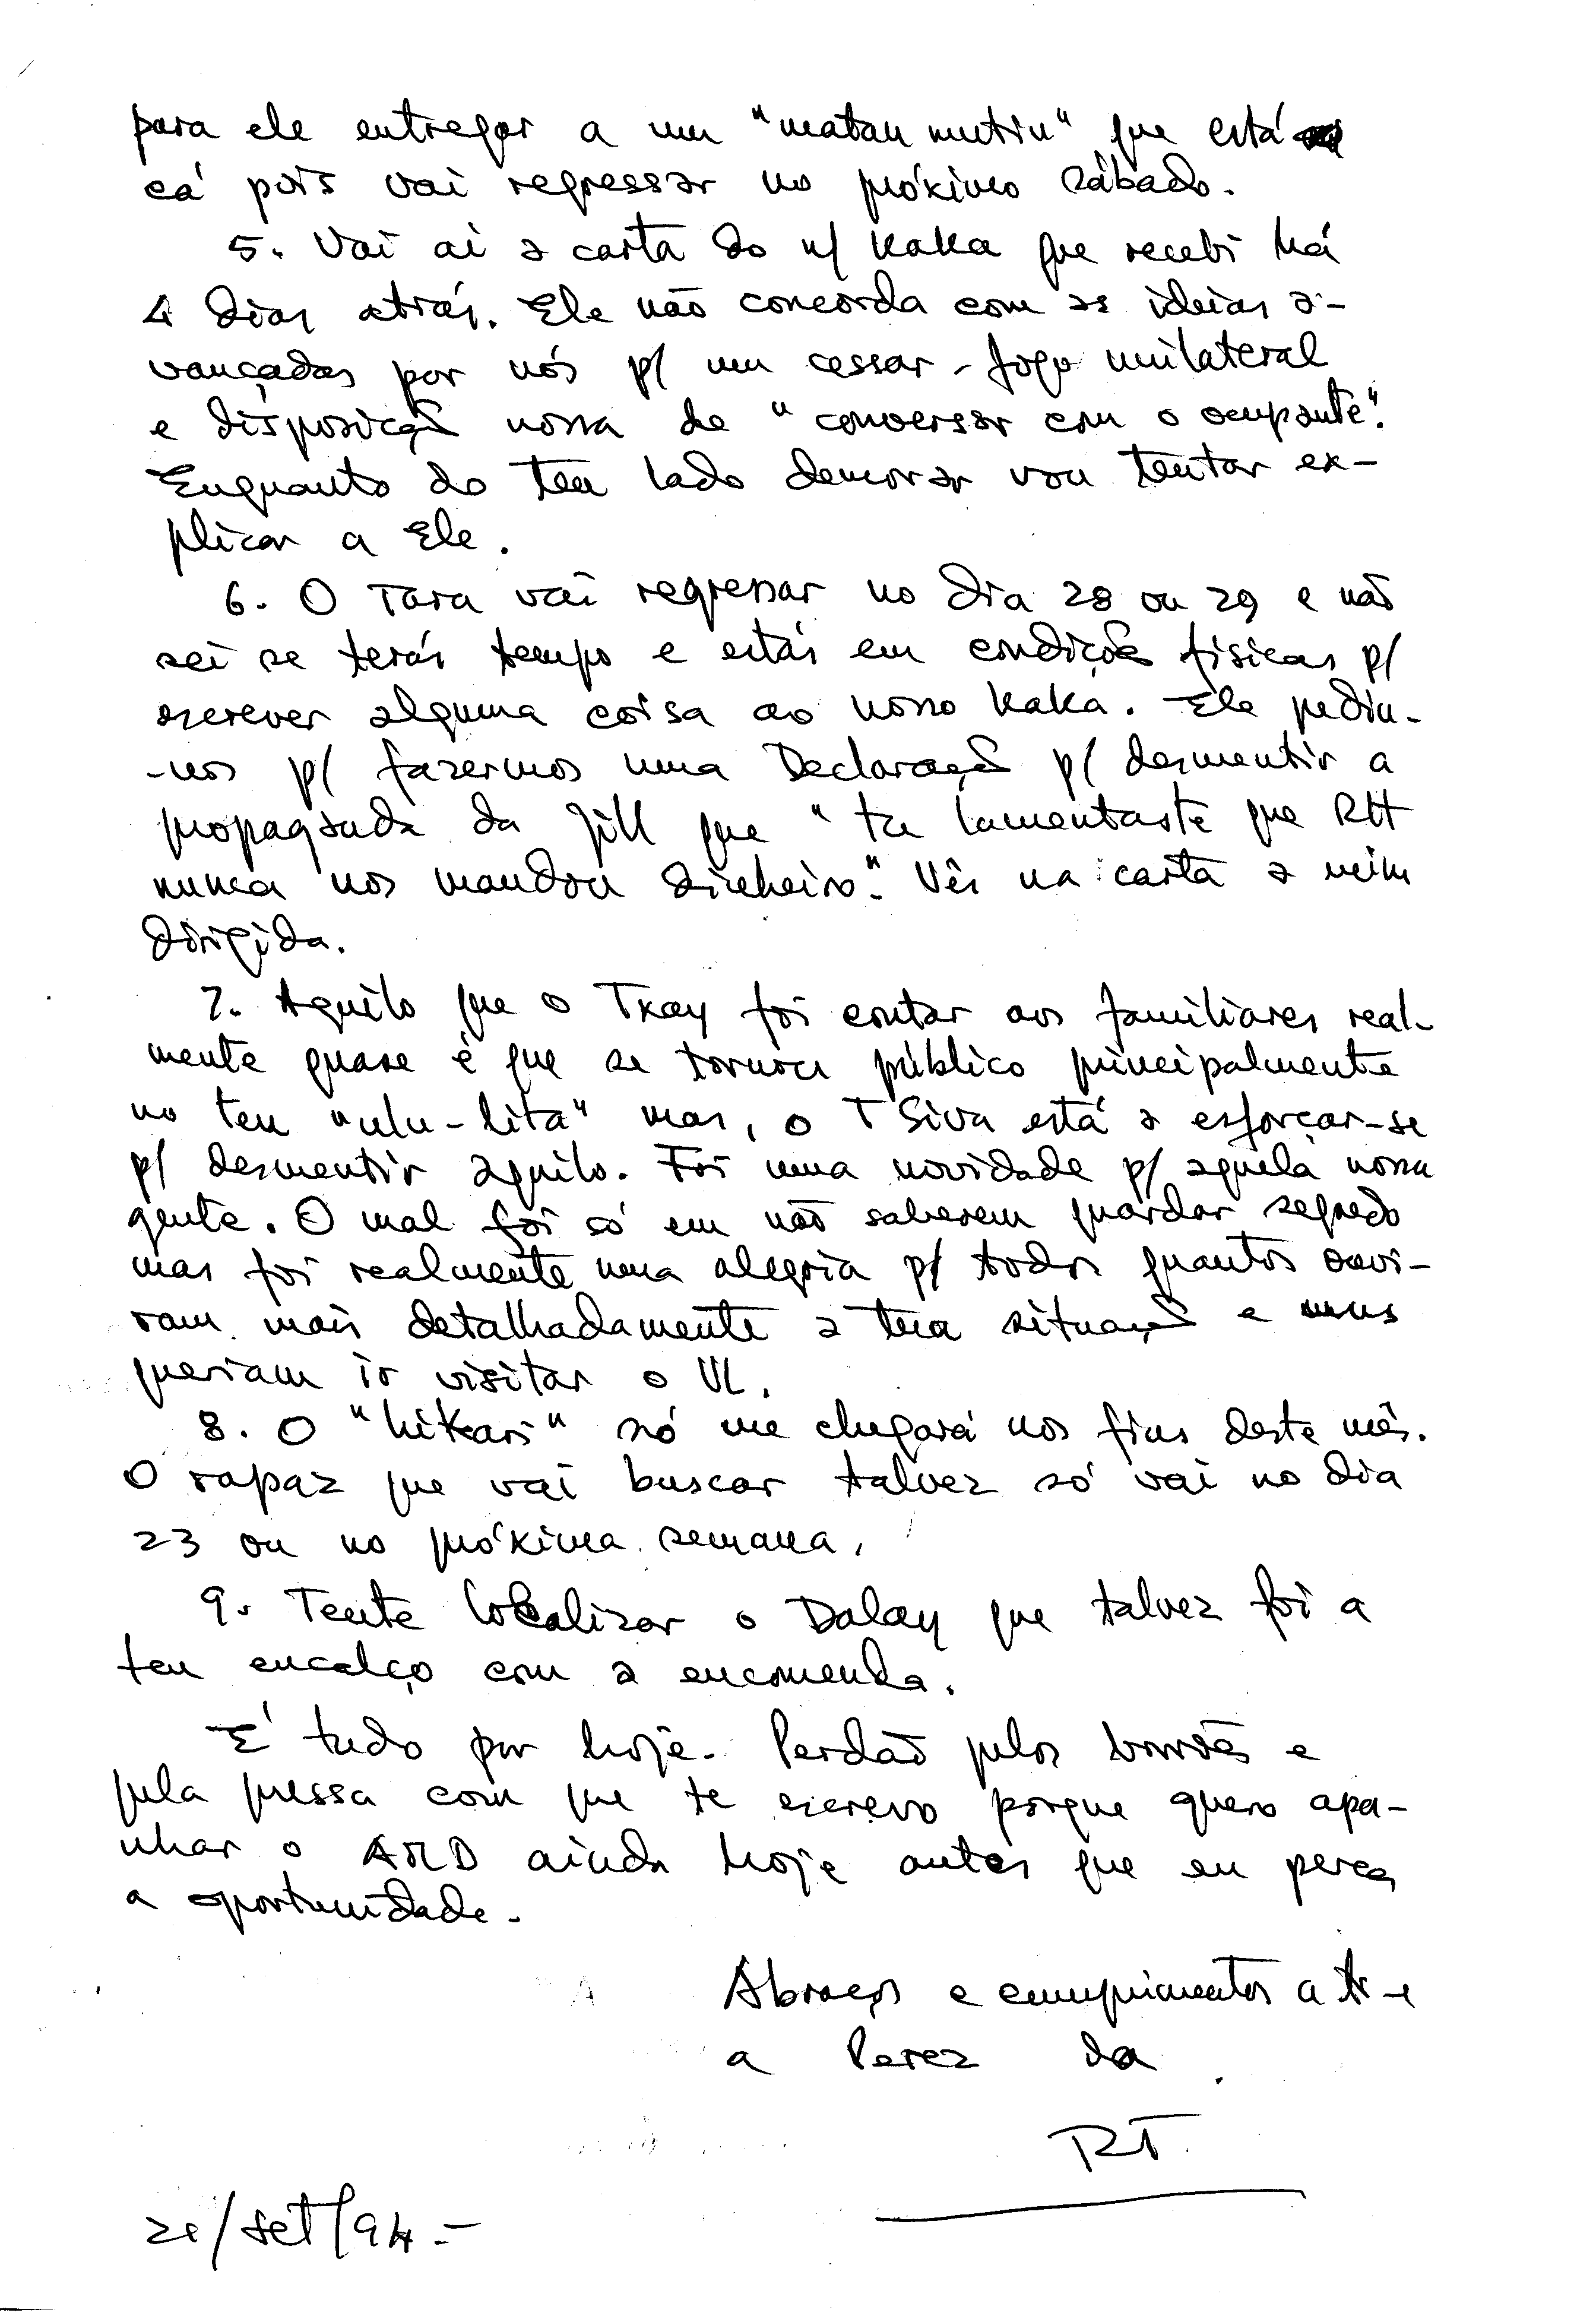 para ele entregar a um "matan mutin" que está
cá pois vai regressar no próximo sábado.
5. Vai aí a carta do n/ Kaka que recebi há
4 dias atrás. Ele não concorda com as ideias a-
vançadas por nós p/ um cessar-fogo unilateral
e disposição nossa de "conversar com o ocupante".
Enquanto do teu lado demorar vou tentar ex-
plicar a Ele.
6. O Tara vai regressar no dia 28 ou 29 e não
sei se terás tempo e estás em condições físicas p/
escrever alguma coisa ao nosso Kaka. Ele pediu-
-nos p/ fazermos uma Declaração p/ desmentir a
propaganda da Jill que "tu lamentaste que RH
nunca nos mandou dinheiro". Vês na carta a mim
dirigida.
7. Aquilo que o Tkay foi contar aos familiares real-
mente quase é que se tornou público principalmente
no teu "ulu-lita" mas, o T Siva está a esforçar-se
p/ desmentir aquilo. Foi uma novidade p/ aquela nossa
gente. O mal foi só em não saberem guardar segredo
mas foi realmente uma alegria p/ todos quantos ouvi-
ram mais detalhadamente a tua situação e
queriam ir visitar o UL.
8. O "hikari" só me chegará nos fins deste mês.
O rapaz que vai buscar talvez só vai no dia
23 ou no próxima semana.
9. Tente localizar o Dalay que talvez foi a
teu encalço com a encomenda.
É tudo por hoje. Perdão pelos borrões e
pela pressa com que te escrevo porque quero apa-
nhar o ARD ainda hoje antes que eu perca
a oportunidade.
Abraços e cumprimentos a ti e
a Perez da
RT
/set/94.-